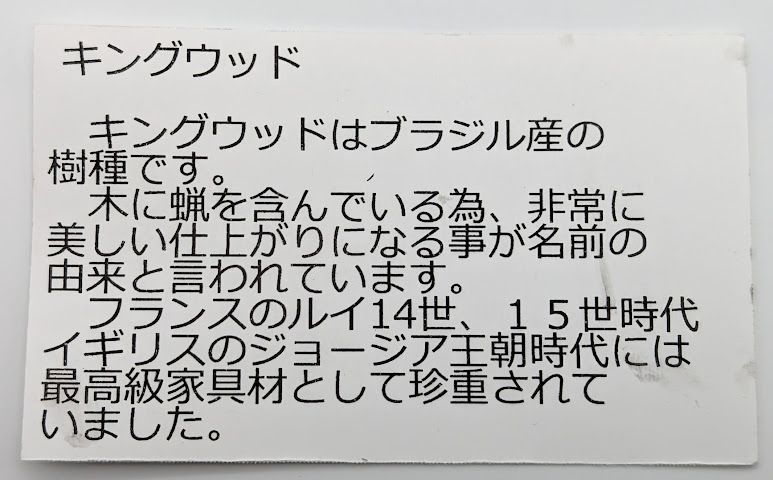 キングウッド
キングウッドはブラジル産の
樹種です。
木に蝋を含んでいる為、非常に
美しい仕上がりになる事が名前の
由来と言われています。
フランスのルイ14世、１５世時代
イギリスのジョージア王朝時代には
最高級家具材として珍重されて
いました。